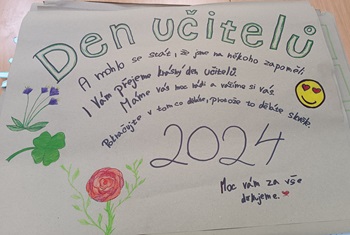 Den učitelů
A mohlo se stát, že jsme na někoho zapoměli.
I Vám přejeme krásný den učitelů.
Máme vás moc rádi a vážíme si vás
Pokračujte v tomto dále, protože to děláte skvěle.
2024
Moc vám za vše
děkujeme.